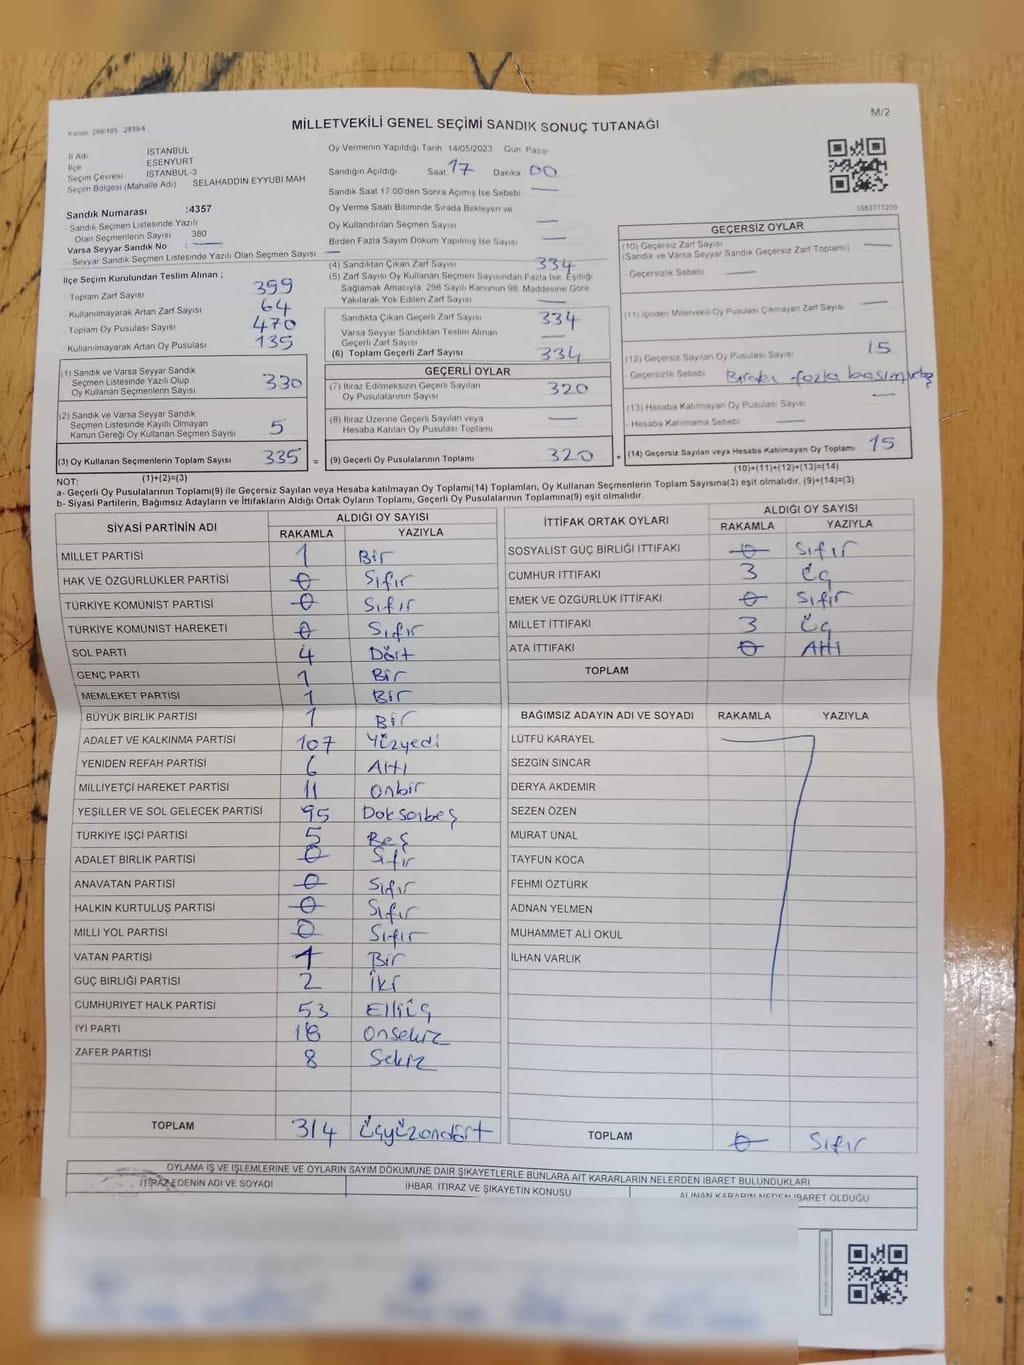 M/2
Kanun 298/105 . 2839/4
MİLLETVEKİLİ GENEL SEÇİMİ SANDIK SONUÇ TUTANAĞI
İl Adı İSTANBUL
İlçe ESENYURT
Seçim Çevresi İSTANBUL-3
Seçim Bölgesi (Mahalle Adı) SELAHADDİN EYYUBİ MAH
Sandık Numarası :4357
- Sandık Seçmen Listesinde Yazılı
Olan Seçmenlerin Sayısı 380
Varsa Seyyar Sandık No :
- Seyyar Sandık Seçmen Listesinde Yazılı Olan Seçmen Sayısı
İlçe Seçim Kurulundan Teslim Alınan ;
- Toplam Zarf Sayısı 399
- Kullanılmayarak Artan Zarf Sayısı 64
- Toplam Oy Pusulası Sayısı 470
- Kullanılmayarak Artan Oy Pusulası 135
(1) Sandık ve Varsa Seyyar Sandık
Seçmen Listesinde Yazılı Olup
Oy Kullanan Seçmenlerin Sayısı 330
(2) Sandık ve Varsa Seyyar Sandık
Seçmen Listesinde Kayıtlı Olmayan
Kanun Gereği Oy Kullanan Seçmen Sayısı 5
(3) Oy Kullanan Seçmenlerin Toplam Sayısı 335 =
(1)+(2)=(3)
Oy Vermenin Yapıldığı Tarih 14/05/2023 Gün Pazar
Sandığın Açıldığı Saat 17 Dakika 00
Sandık Saat 17:00'den Sonra Açılmış İse Sebebi
Oy Verme Saati Bitiminde Sırada Bekleyen ve
Oy Kullandırılan Seçmen Sayısı
Birden Fazla Sayım Döküm Yapılmış İse Sayısı
(4) Sandıktan Çıkan Zarf Sayısı 334
(5) Zarf Sayısı Oy Kullanan Seçmen Sayısından Fazla İse; Eşitliği
Sağlamak Amacıyla, 298 Sayılı Kanunun 98. Maddesine Göre
Yakılarak Yok Edilen Zarf Sayısı
Sandıkta Çıkan Geçerli Zarf Sayısı 334
Varsa Seyyar Sandıktan Teslim Alınan
Geçerli Zarf Sayısı
(6) Toplam Geçerli Zarf Sayısı 334
GEÇERLİ OYLAR
(7) İtiraz Edilmeksizin Geçerli Sayılan
Oy Pusulalarının Sayısı 320
(8) İtiraz Üzerine Geçerli Sayılan veya
Hesaba Katılan Oy Pusulası Toplamı
(9) Geçerli Oy Pusulalarının Toplamı 320 +
1083777239
GEÇERSİZ OYLAR
(10) Geçersiz Zarf Sayısı
(Sandık ve Varsa Seyyar Sandık Geçersiz Zarf Toplamı)
- Geçersizlik Sebebi
(11) İçinden Milletvekili Oy Pusulası Çıkmayan Zarf Sayısı
(12) Geçersiz Sayılan Oy Pusulası Sayısı 15
- Geçersizlik Sebebi Birden fazla basım
(13) Hesaba Katılmayan Oy Pusulası Sayısı
- Hesaba Katılmama Sebebi
(14) Geçersiz Sayılan veya Hesaba Katılmayan Oy Toplamı 15
(10)+(11)+(12)+(13)=(14)
NOT:
a- Geçerli Oy Pusulalarının Toplamı(9) ile Geçersiz Sayılan veya Hesaba katılmayan Oy Toplamı(14) Toplamları, Oy Kullanan Seçmenlerin Toplam Sayısına(3) eşit olmalıdır. (9)+(14)=(3)
b- Siyasi Partilerin, Bağımsız Adayların ve İttifakların Aldığı Ortak Oyların Toplamı, Geçerli Oy Pusulalarının Toplamına(9) eşit olmalıdır.
SİYASİ PARTİNİN ADI ALDIĞI OY SAYISI
RAKAMLA YAZIYLA
MİLLET PARTİSİ 1 Bir
HAK VE ÖZGÜRLÜKLER PARTİSİ 0 Sıfır
TÜRKİYE KOMÜNİST PARTİSİ 0 Sıfır
TÜRKİYE KOMÜNİST HAREKETİ 0 Sıfır
SOL PARTİ 4 Dört
GENÇ PARTİ 1 Bir
MEMLEKET PARTİSİ 1 Bir
BÜYÜK BİRLİK PARTİSİ 1 Bir
ADALET VE KALKINMA PARTİSİ 107 Yüzyedi
YENİDEN REFAH PARTİSİ 6 Altı
MİLLİYETÇİ HAREKET PARTİSİ 11 onbir
YEŞİLLER VE SOL GELECEK PARTİSİ 95 Doksanbeş
TÜRKİYE İŞÇİ PARTİSİ 5 Beş
ADALET BİRLİK PARTİSİ 0 Sıfır
ANAVATAN PARTİSİ 0 Sıfır
HALKIN KURTULUŞ PARTİSİ 0 Sıfır
MİLLİ YOL PARTİSİ 0 Sıfır
VATAN PARTİSİ 1 Bir
GÜÇ BİRLİĞİ PARTİSİ 2 İki
CUMHURİYET HALK PARTİSİ 53 Elliüç
İYİ PARTİ 18 Onsekiz
ZAFER PARTİSİ 8 Sekiz
TOPLAM 314 Üçyüzondört
İTTİFAK ORTAK OYLARI ALDIĞI OY SAYISI
RAKAMLA YAZIYLA
SOSYALİST GÜÇ BİRLİĞİ İTTİFAKI 0 Sıfır
CUMHUR İTTİFAKI 3 Üç
EMEK VE ÖZGÜRLÜK İTTİFAKI 0 Sıfır
MİLLET İTTİFAKI 3 Üç
ATA İTTİFAKI 0 Altı
TOPLAM
BAĞIMSIZ ADAYIN ADI VE SOYADI RAKAMLA YAZIYLA
LÜTFÜ KARAYEL
SEZGİN SİNCAR
DERYA AKDEMİR
SEZEN ÖZEN
MURAT ÜNAL
TAYFUN KOCA
FEHMİ ÖZTÜRK
ADNAN YELMEN
MUHAMMET ALİ OKUL
İLHAN VARLIK
TOPLAM 0 Sıfır
OYLAMA İŞ VE İŞLEMLERİNE VE OYLARIN SAYIM DÖKÜMÜNE DAİR ŞİKAYETLERLE BUNLARA AİT KARARLARIN NELERDEN İBARET BULUNDUKLARI
İTİRAZ EDENİN ADI VE SOYADI İHBAR, İTİRAZ VE ŞİKAYETİN KONUSU ALINAN KARARIN NEDEN İBARET OLDUĞU